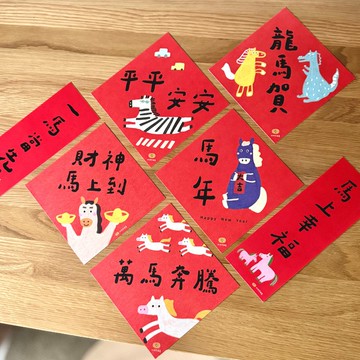 龍馬賀
平平安安
一馬當先
財神
馬上到
馬年
Happy New Year
馬上幸福
萬馬奔騰